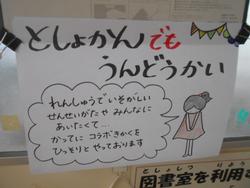 としょかんでも
うんどうかい
れんしゅうでいそがしい
せんせいがたや みんなに
あいたくて…
かってに コラボきかくを
ひっそりと やっております
としょしつ りよう
図書室を利用